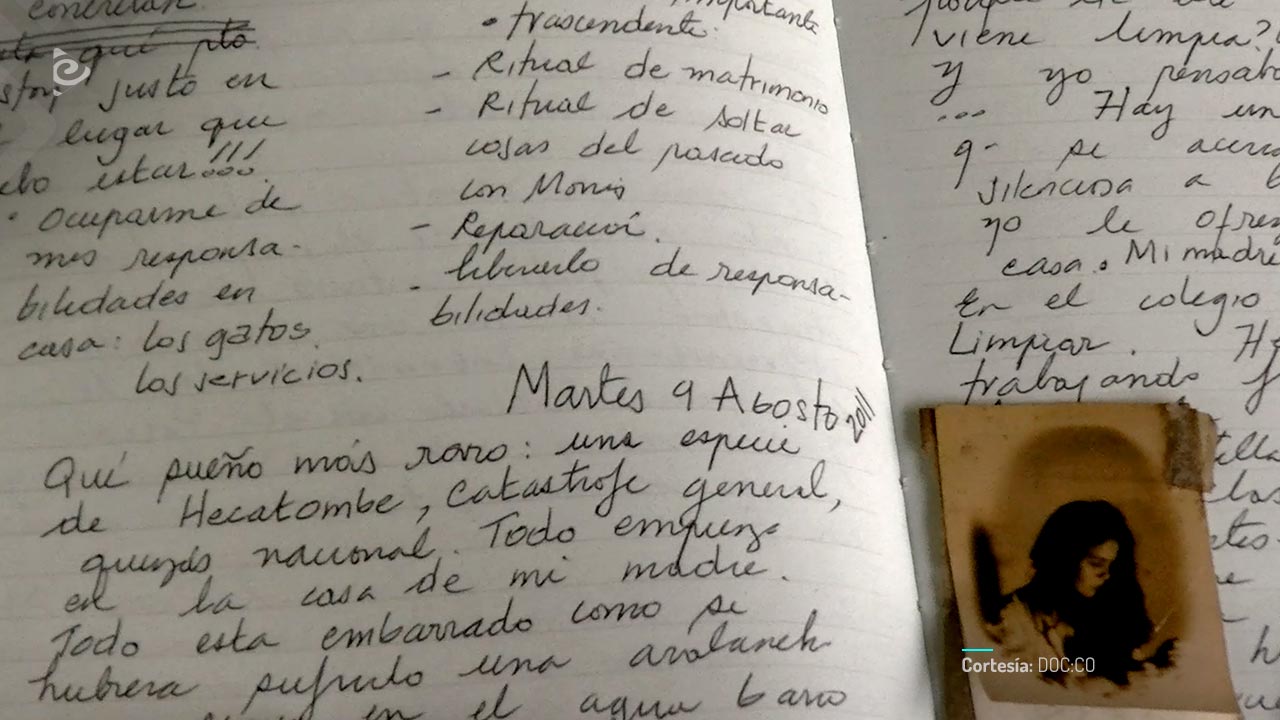 concretar.
qué pto
justo en
lugar que
estar!!!
• Ocuparme de
mis responsa-
bilidades en
casa: los gatos.
los servicios.
importante
• trascendente.
- Ritual de matrimonio
- Ritual de soltar
cosas del pasado
con Monis
- Reparación.
- liberarlo de responsa-
bilidades.
Martes 9 Agosto 2011
Qué sueño más raro: una especie
de Hecatombe, catástrofe general,
quizás nacional. Todo empieza
en la casa de mi madre.
Todo esta embarrado como si
hubiera sufrido una avalanch
en el agua barro
viene limpia?
Y yo pensaba
... Hay un
q- se acerca
silenciosa a
yo le ofre
casa. Mi madre
En el colegio
Limpiar. H
trabajando
Cortesía: DOC:CO